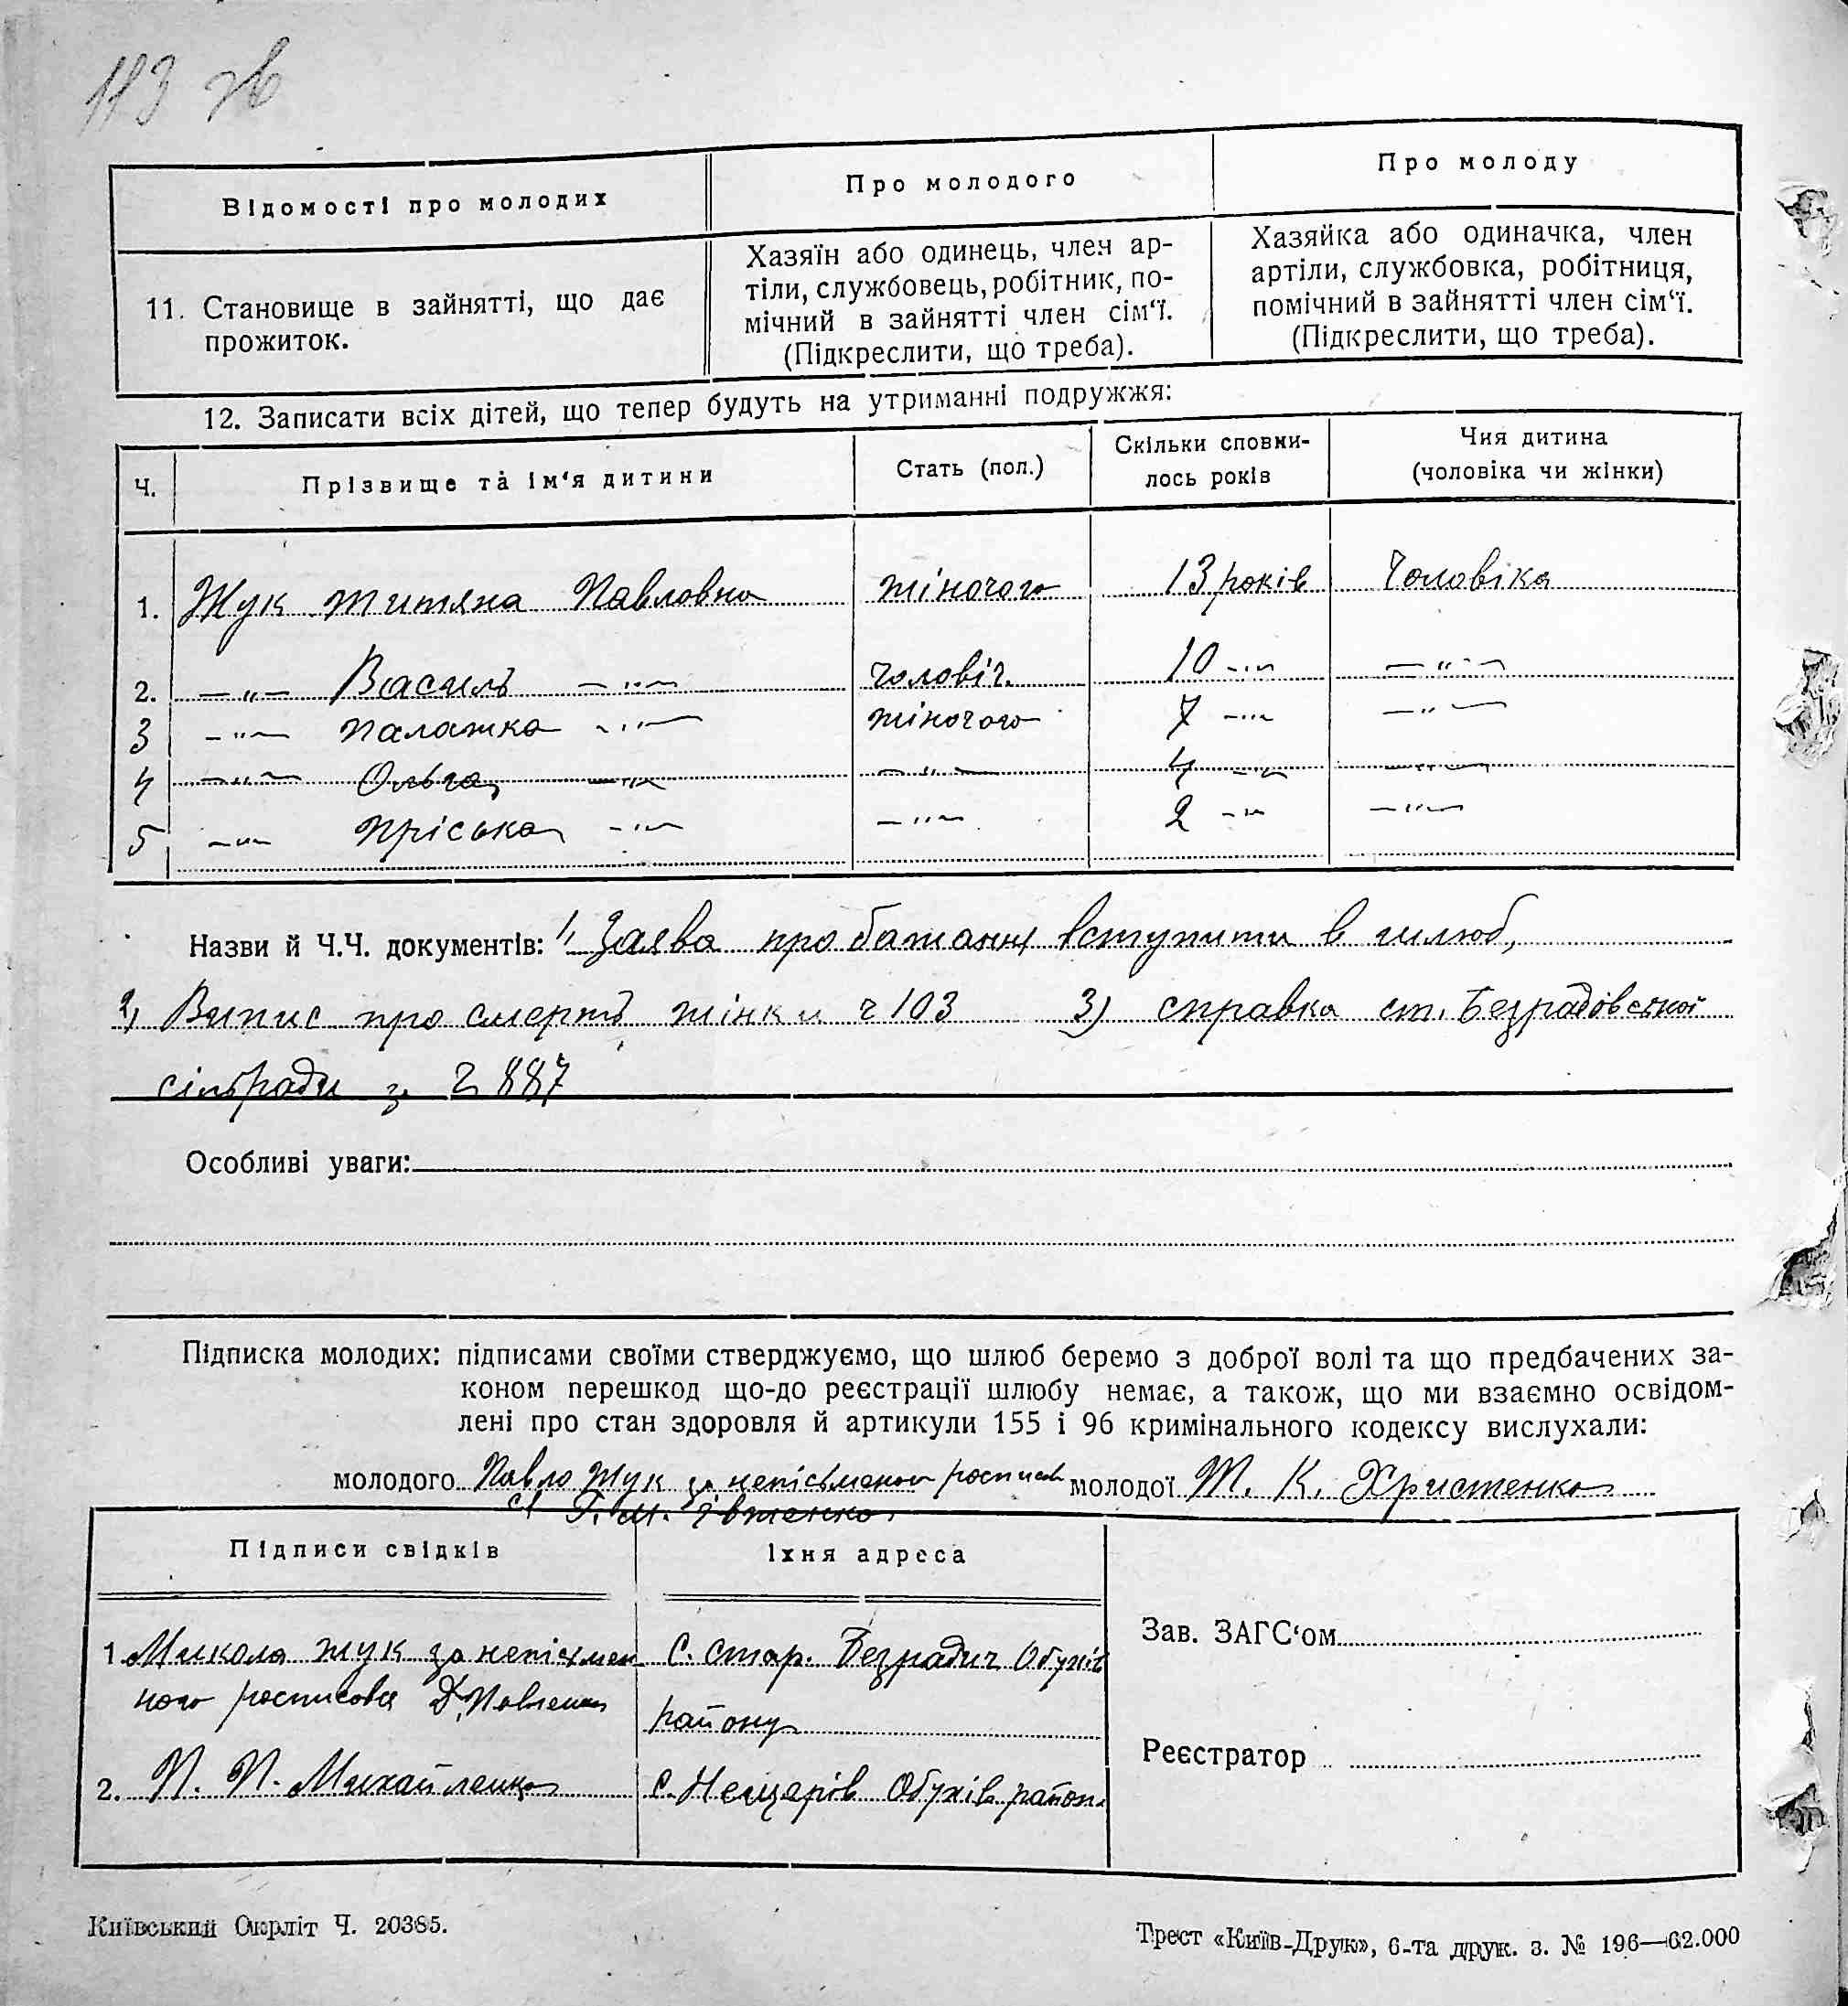 113 зв
Відомості про молодих
Про молодого
Про молоду
11. Становище в зайнятті, що дає
прожиток.
Хазяїн або одинець, член ар-
тіли, службовець, робітник, по-
мічний в зайнятті член сім'ї.
(Підкреслити, що треба).
Хазяйка або одиначка, член
артіли, службовка, робітниця,
помічний в зайнятті член сім'ї.
(Підкреслити, що треба).
12. Записати всіх дітей, що тепер будуть на утриманні подружжя:
Ч. Прізвище та ім'я дитини Стать (пол.) Скільки сповни-
лось років Чия дитина
(чоловіка чи жінки)
1. Жук Титяна Павловна жіночого 13 років Чоловіка
2. —„— Василь —„— чоловіч. 10 —„— —„—
3 —„— Палажка —„— жіночого 7 —„— —„—
4 —„— Ольга —„— —„— 4 —„— —„—
5 —„— Пріська —„— —„— 2 —„— —„—
Назви й Ч.Ч. документів: 1, Заява про бажання вступити в шлюб,
2, Випис про смерть жінки ч 103 3) справка ст. Безрадівської
сільради з ч 887
Особливі уваги:
Підписка молодих: підписами своїми стверджуємо, що шлюб беремо з доброї волі та що предбачених за-
коном перешкод що-до реєстрації шлюбу немає, а також, що ми взаємно освідом-
лені про стан здоровля й артикули 155 і 96 кримінального кодексу вислухали:
молодого Павло Жук за непісьменого росписав молодої Т. К. Христенко
Підписи свідків
Їхня адреса
1. Микола Жук за непісьмен
ного росписовся Д. Павленко
С. Стар. Безрадич Обухів
району
2. П. П. Михайленко
с. Нещерів Обухів район.
Зав. ЗАГС'ом
Реєстратор
Київський Окрліт Ч. 20385.
Трест «Київ-Друк», 6-та друк. з. № 196—62.000